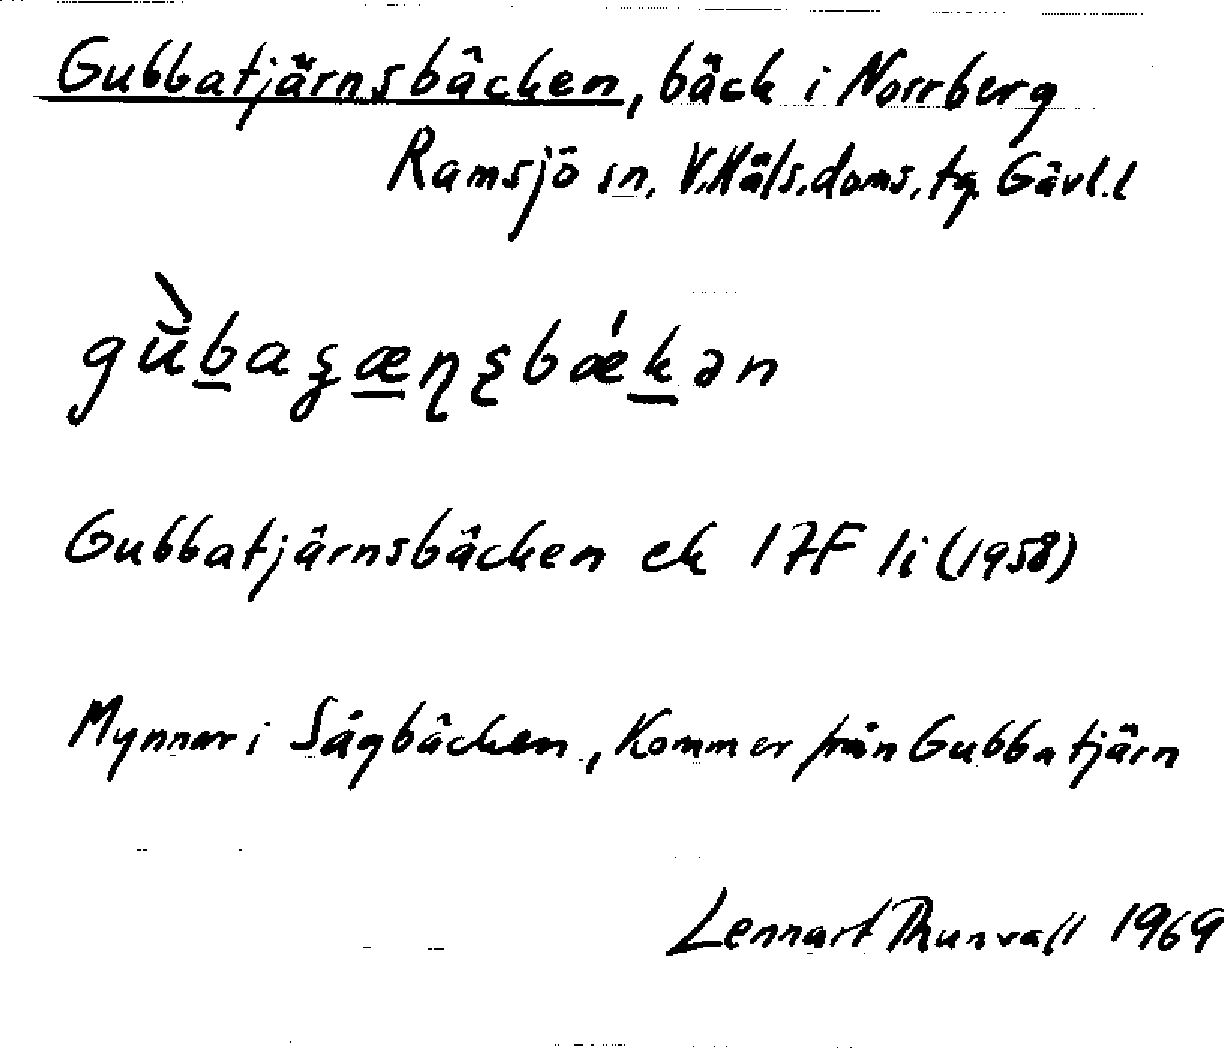 Gubbatjärnsbäcken, bäck i Norrberg
Ramsjö sn. V.Häls.doms.tg. Gävl.l
gùbaʂæɳʂbǽkən
Gubbatjärnsbäcken ek 17F 1i (1958)
Mynnar i Sågbäcken, Kommer från Gubbatjärn
Lennart Thunvall 1969